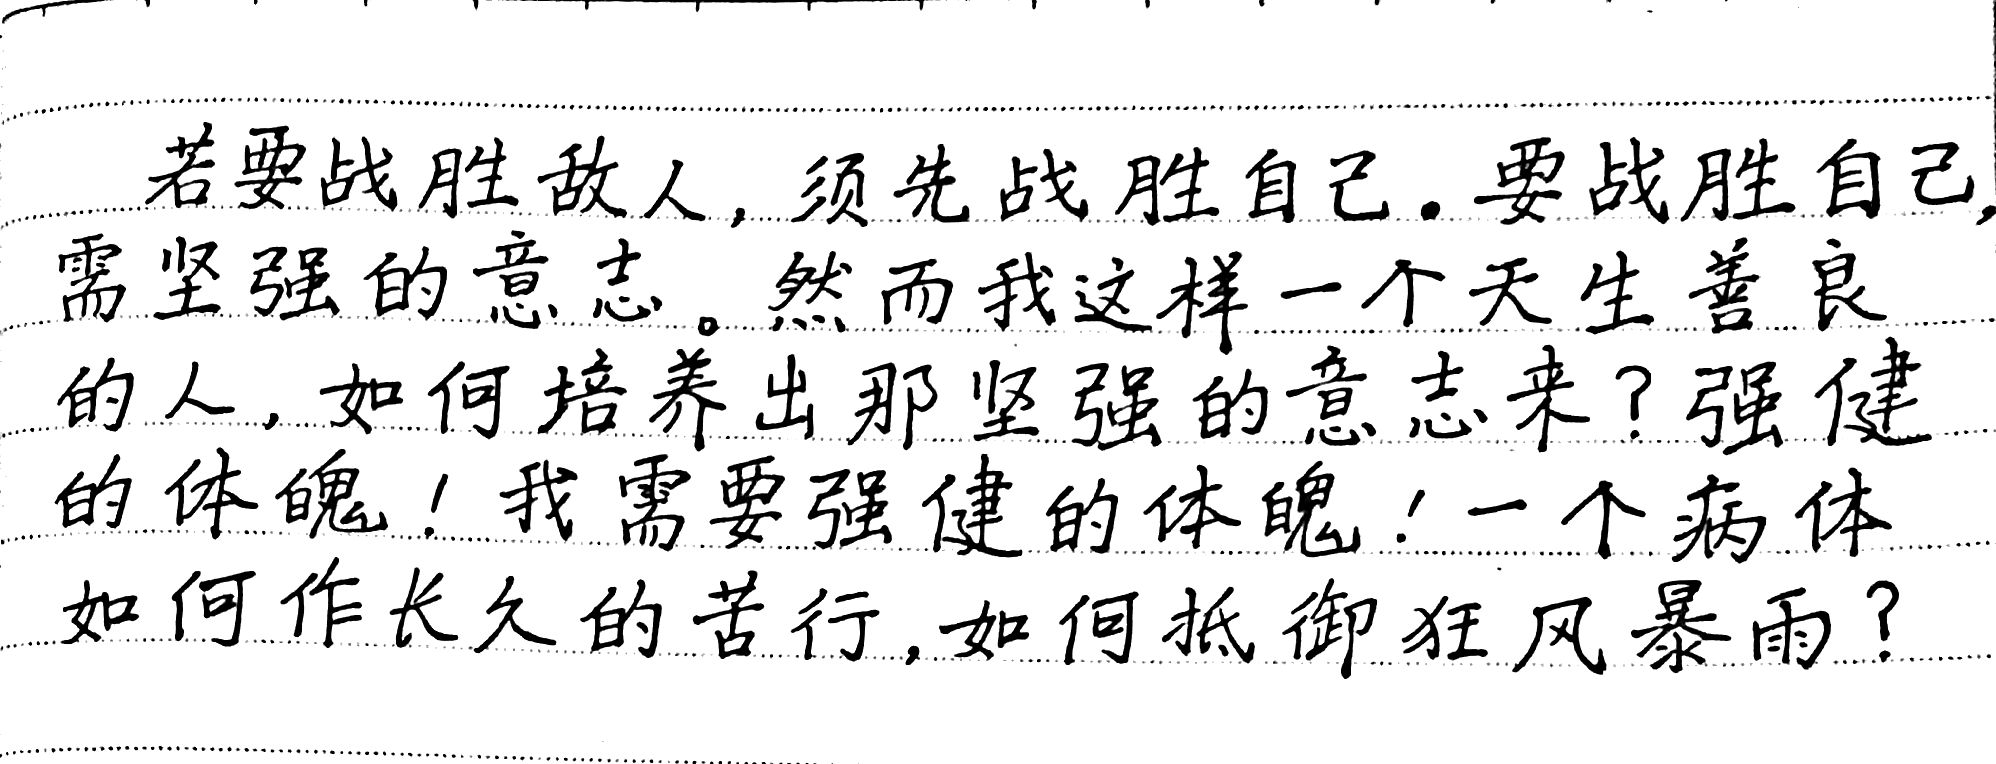 若要战胜敌人,须先战胜自己.要战胜自己,
需坚强的意志。然而我这样一个天生善良
的人,如何培养出那坚强的意志来?强健
的体魄!我需要强健的体魄!一个病体
如何作长久的苦行,如何抵御狂风暴雨?